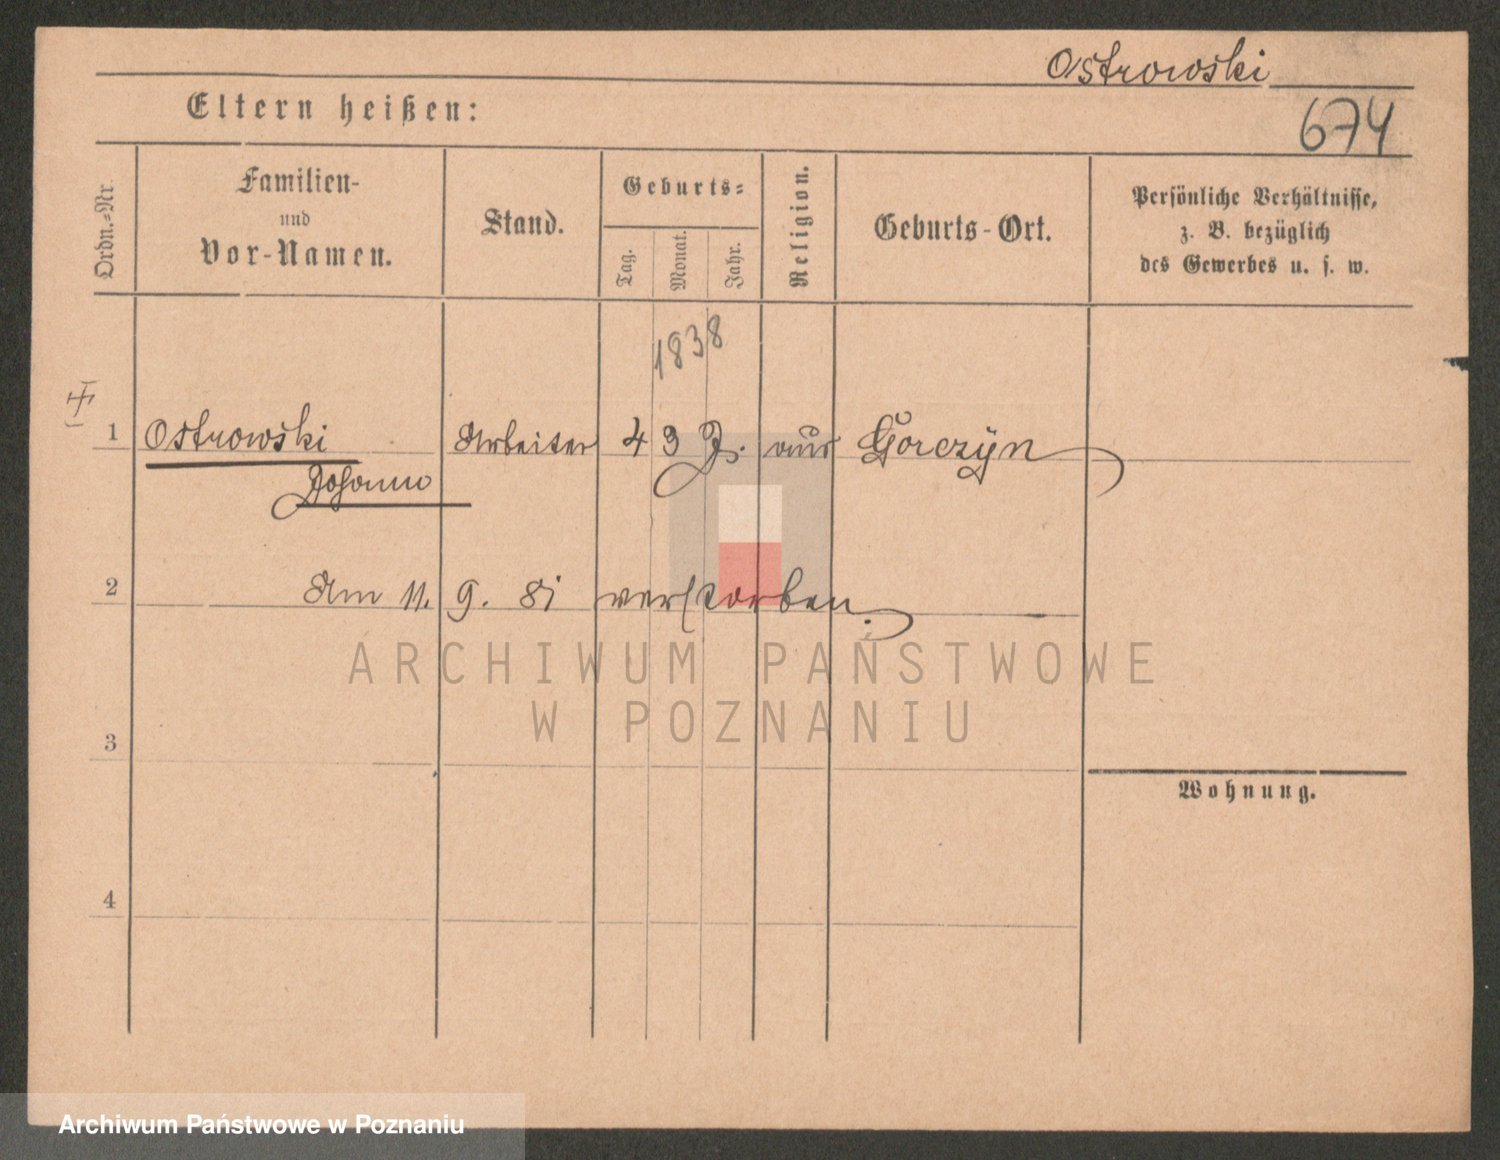 Ostrowski
Eltern heißen:
674
Ordn.-Nr.
Familien-
und
Vor-Namen.
Stand.
Geburts-
Tag.
Monat.
Jahr.
Religion.
Geburts-Ort.
Persönliche Verhältnisse,
z. B. bezüglich
des Gewerbes u. s. w.
1838
1 Ostrowski Arbeiter 43 J. aus Gorczyn
Johann
2 Am 11. 9. 81 verstorben.
ARCHIWUM PAŃSTWOWE
W POZNANIU
3
Wohnung.
4
Archiwum Państwowe w Poznaniu